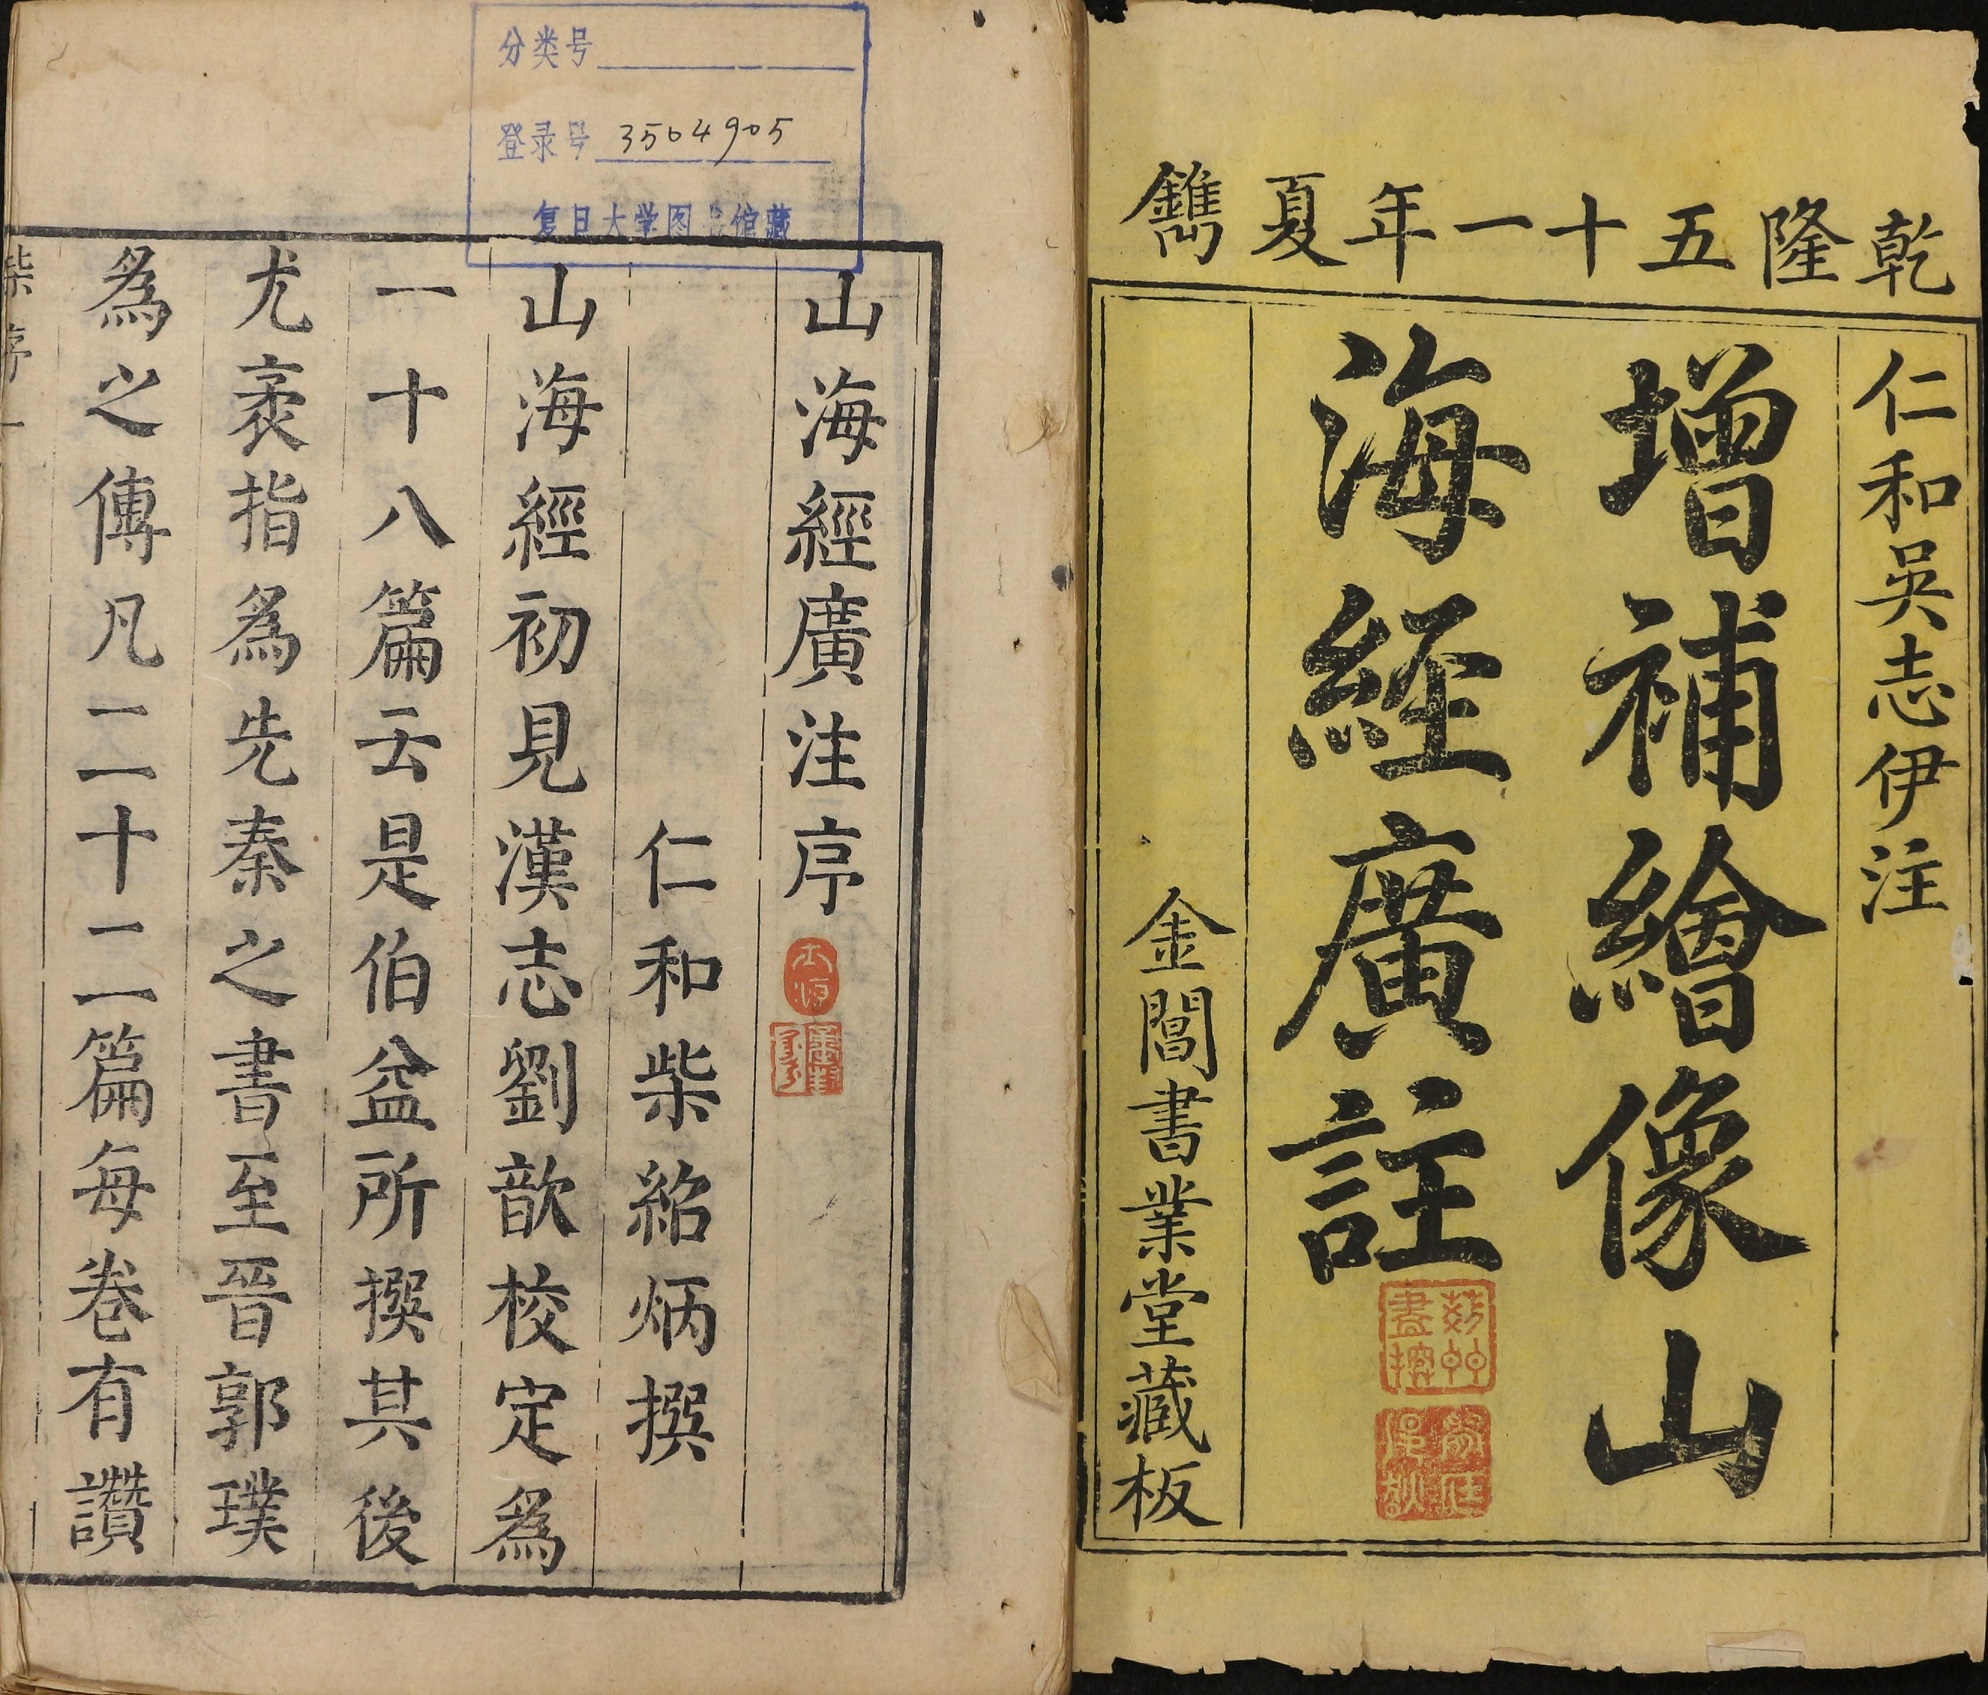 乾隆五十一年夏鐫
仁和吳志伊注
增補繪像山
海経廣註
金閶書業堂藏板
分类号
登录号 3504905
复旦大学图书馆藏
山海經廣注序
仁和柴紹炳撰
山海經初見漢志劉歆校定爲
一十八篇云是伯益所撰其後
尤袤指爲先秦之書至晉郭璞
爲之傳凡二十二篇每卷有讚
柴序 一